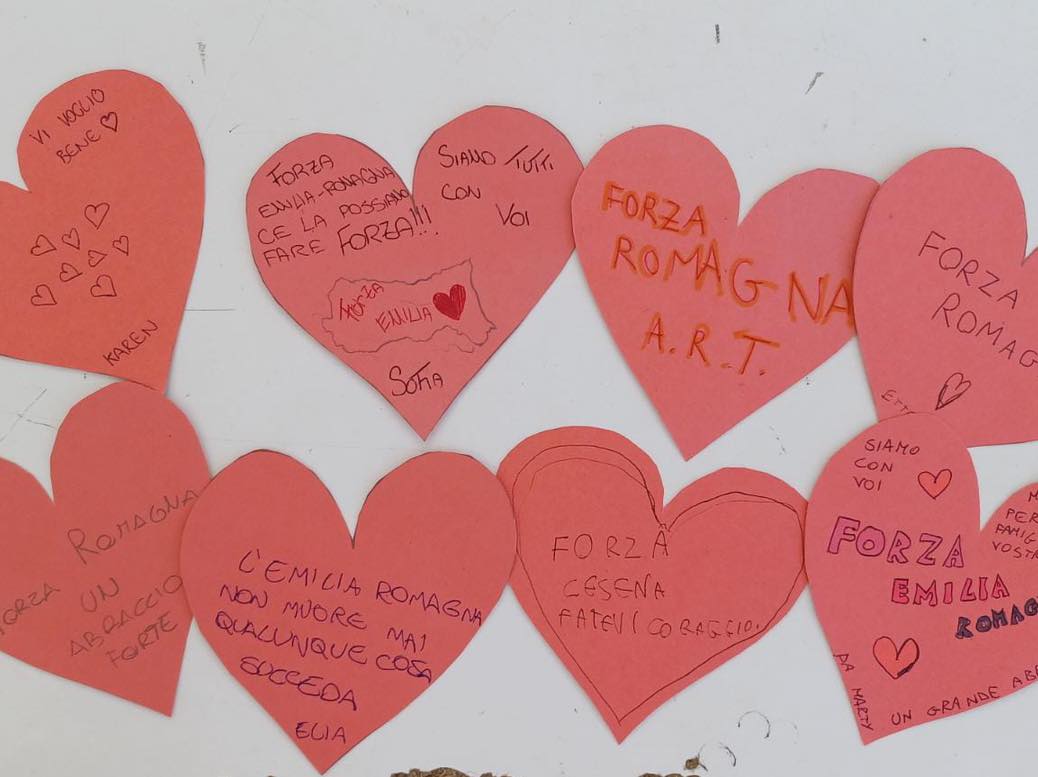 VI VOGLIO
BENE
KAREN
FORZA
EMILIA-ROMAGNA
CE LA POSSIAMO
FARE FORZA!!!
SIAMO TUTTI
CON
VOI
FORZA
EMILIA
SOFIA
FORZA
ROMAGNA
A.R.T.
FORZA
ROMAG
ETT
FORZA ROMAGNA
UN
ABRACCIO
FORTE
L'EMILIA ROMAGNA
NON MUORE MAI
QUALUNQUE COSA
SUCCEDA
ELIA
FORZA
CESENA
FATEVI CORAGGIO.
SIAMO
CON
VOI
PER
FAMIG
VOSTR
FORZA
EMILIA
ROMAG
DA MARTY
UN GRANDE ABR